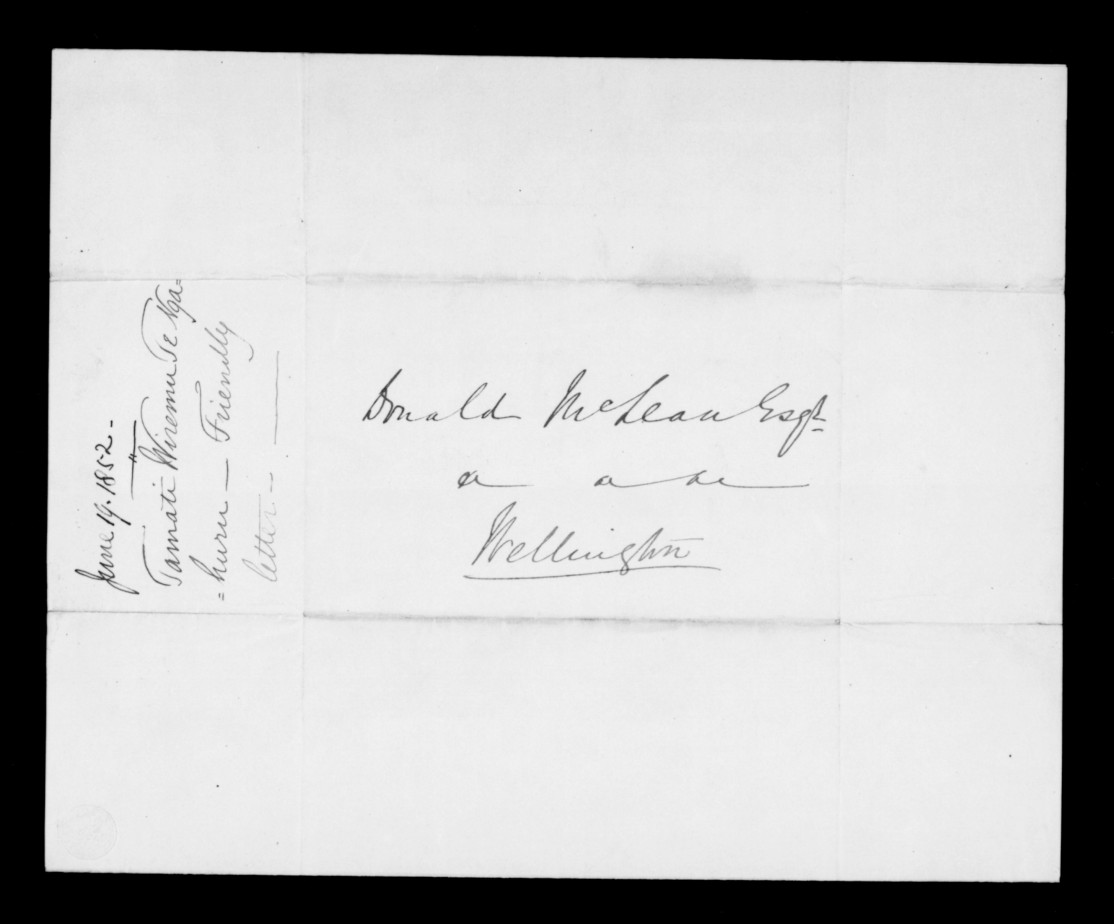 June 19. 1852 -
Tamati Wiremu Te Nga=
=huru — Friendly
letter. —
Donald McLean Esqr
Wellington